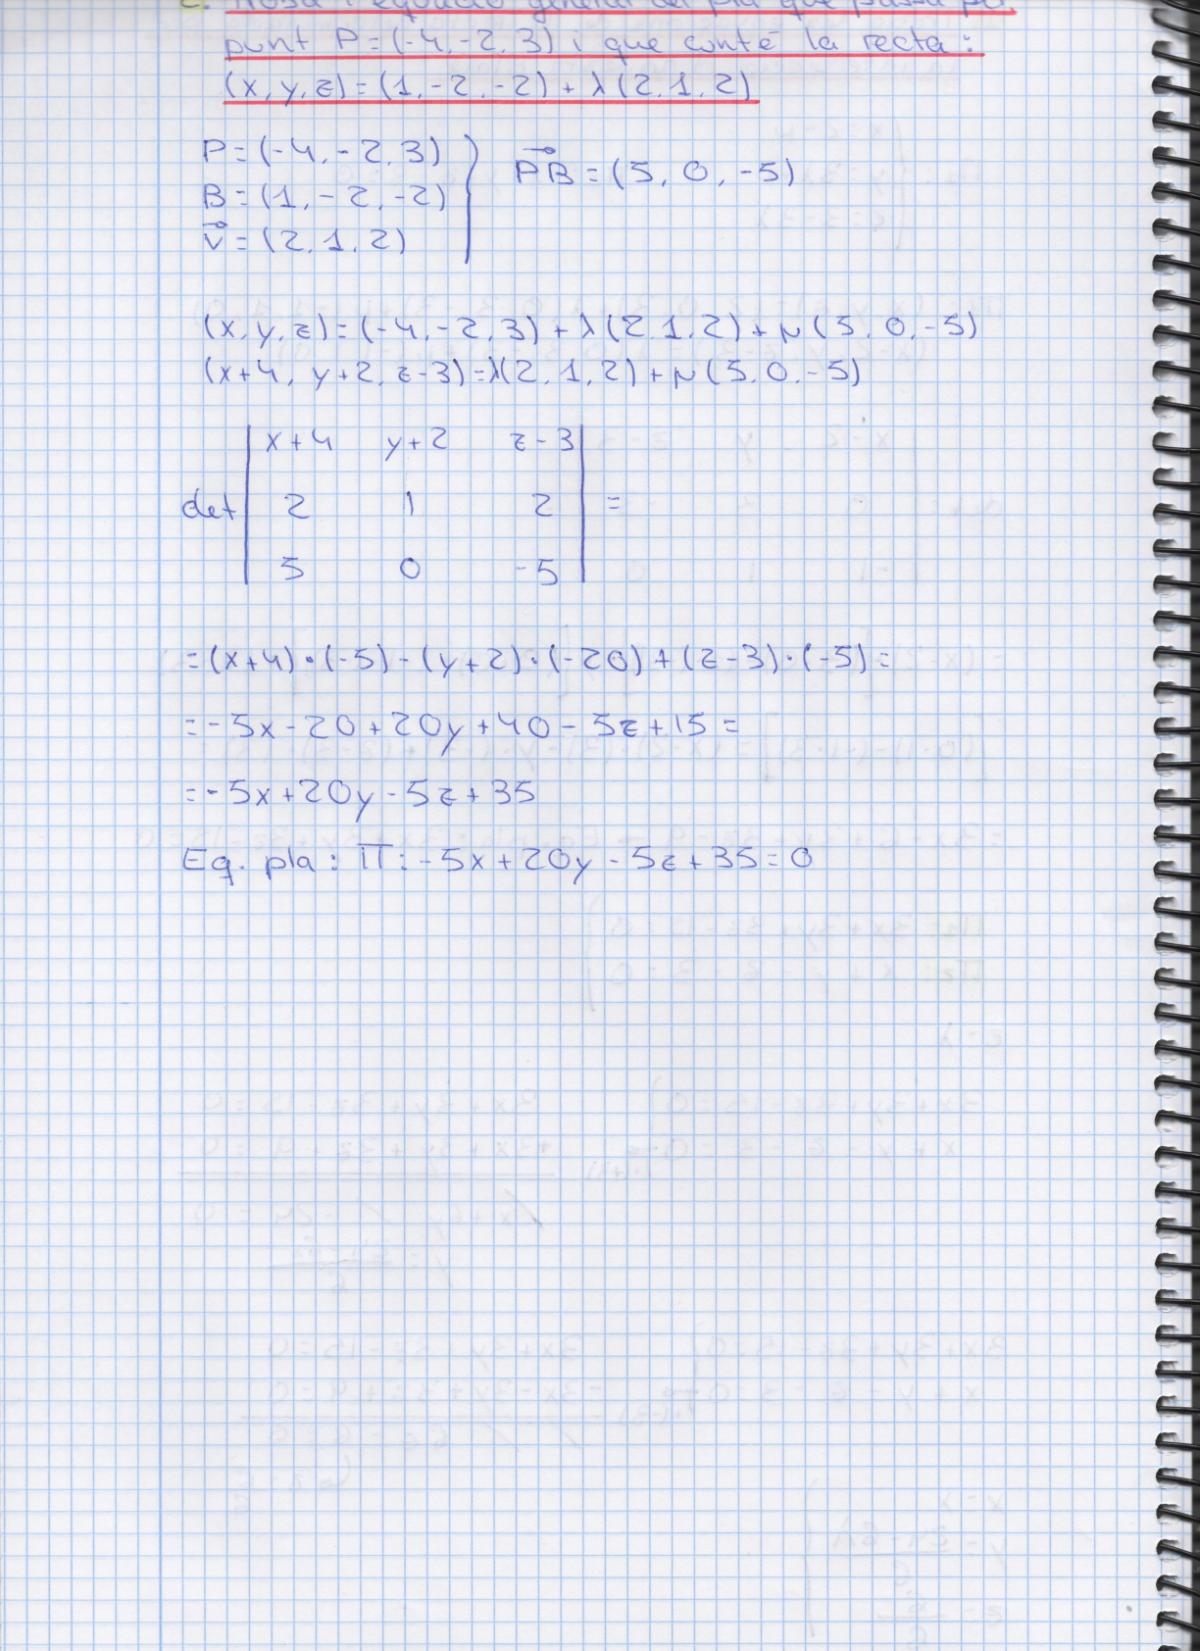 l'equació general del pla que passa
punt P=(-4,-2,3) i que conté la recta:
(x,y,z)=(1,-2,-2)+λ(2,1,2)
P=(-4,-2,3)
B=(1,-2,-2)
v=(2,1,2)
PB=(5,0,-5)
(x,y,z)=(-4,-2,3)+λ(2,1,2)+μ(5,0,-5)
(x+4, y+2, z-3)=λ(2,1,2)+μ(5,0,-5)
x+4 y+2 z-3
det 2 1 2 =
5 0 -5
=(x+4)·(-5)-(y+2)·(-20)+(z-3)·(-5)=
=-5x-20+20y+40-5z+15=
=-5x+20y-5z+35
Eq. pla: π:-5x+20y-5z+35=0